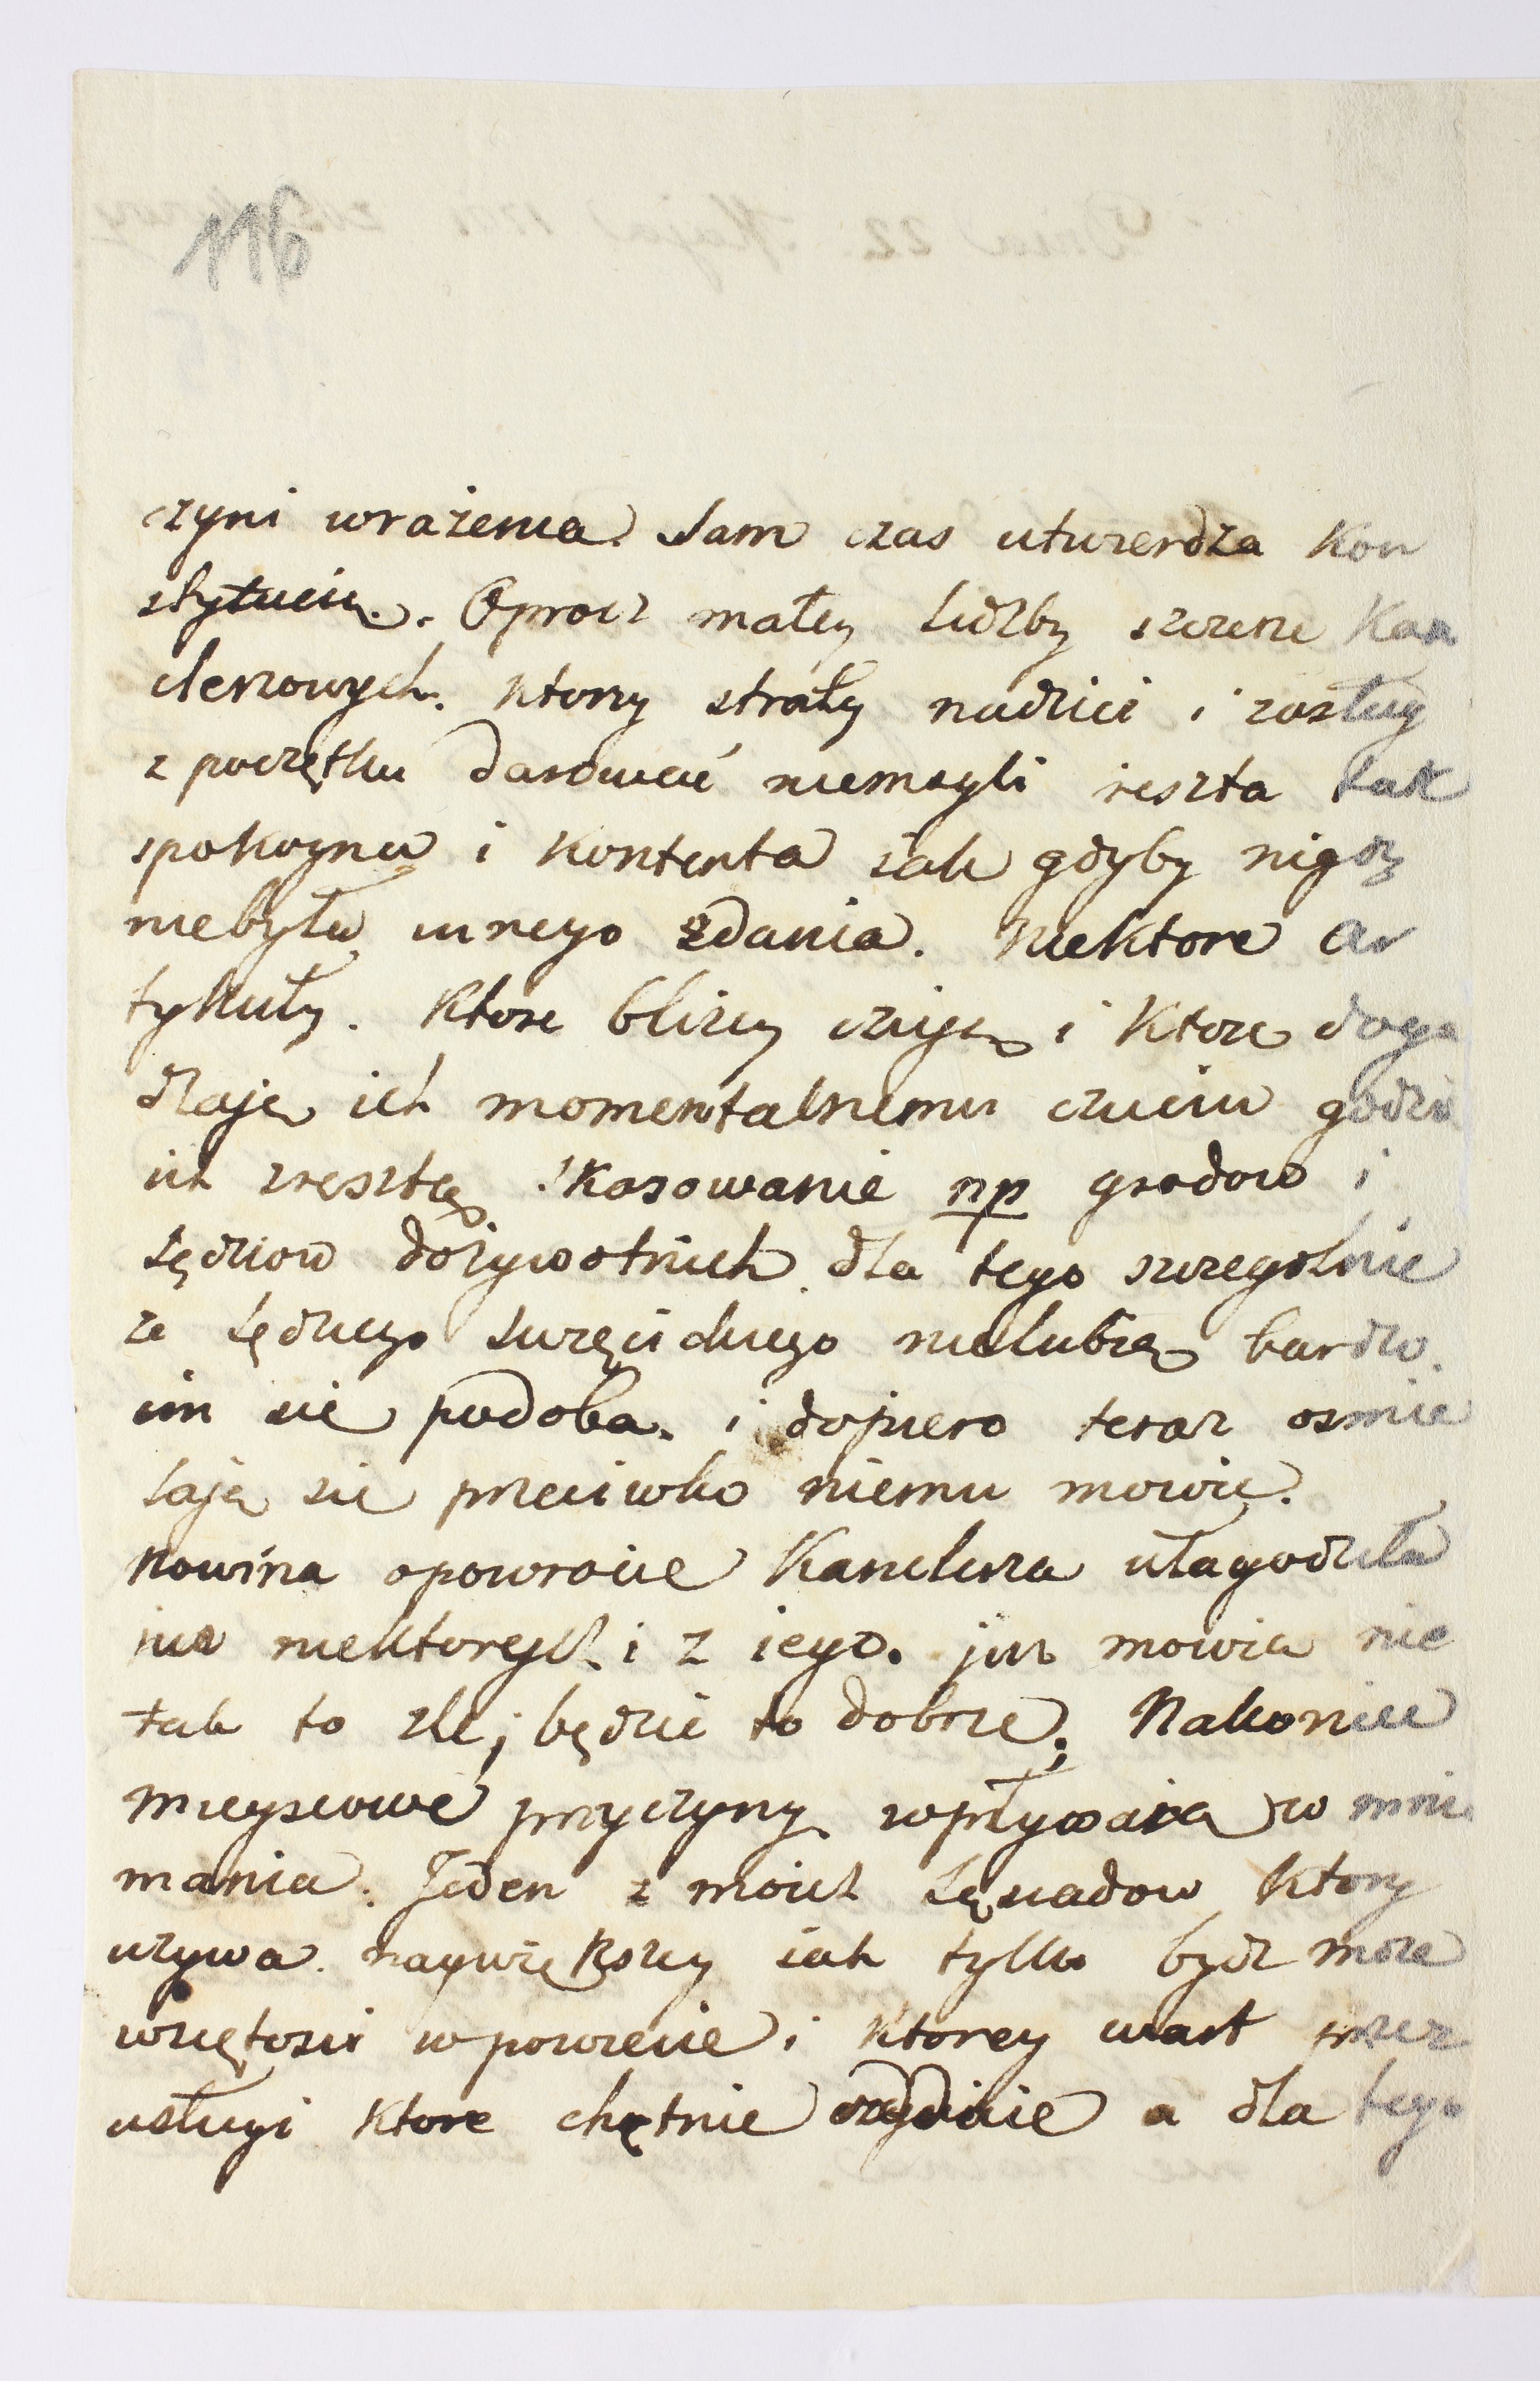 116
czyni wrażenia. Sam czas utwierdza Kon
stytucią. Oprocz małey liczby szczerze Kan
clerzowych. ktorzy straty nadziei i zasług
z początku darować niemogli reszta tak
spokoyna i kontenta iak gdyby nigdy
niebyła innego zdania. Niektore ar
tykuły. Ktore bliżey czuią i Ktore doga
dzaią ich momentalnemu czuciu godzą
ich zresztą. Kasowanie np grodow i
sędziow dożywotnich dla tego szczegolnie
ze sędziego Święcickiego nielubią bardzo
im się podoba. i dopiero teraz osmie
laią się przeciwko niemu mowić.
Nowina opowrocie Kanclerza ułagodziła
iuż niektorych i z iego. już mowią nie
tak to zle; będzie to dobrze; Nakoniec
mieyscowe przyczyny wpływaią w mnie
mania. Jeden z moich sąsiadow ktory
używa naywiększey iak tylko bydz może
wziętosci wpowiecie i ktorey wart przez
usługi ktore chętnie czyni a dla tego